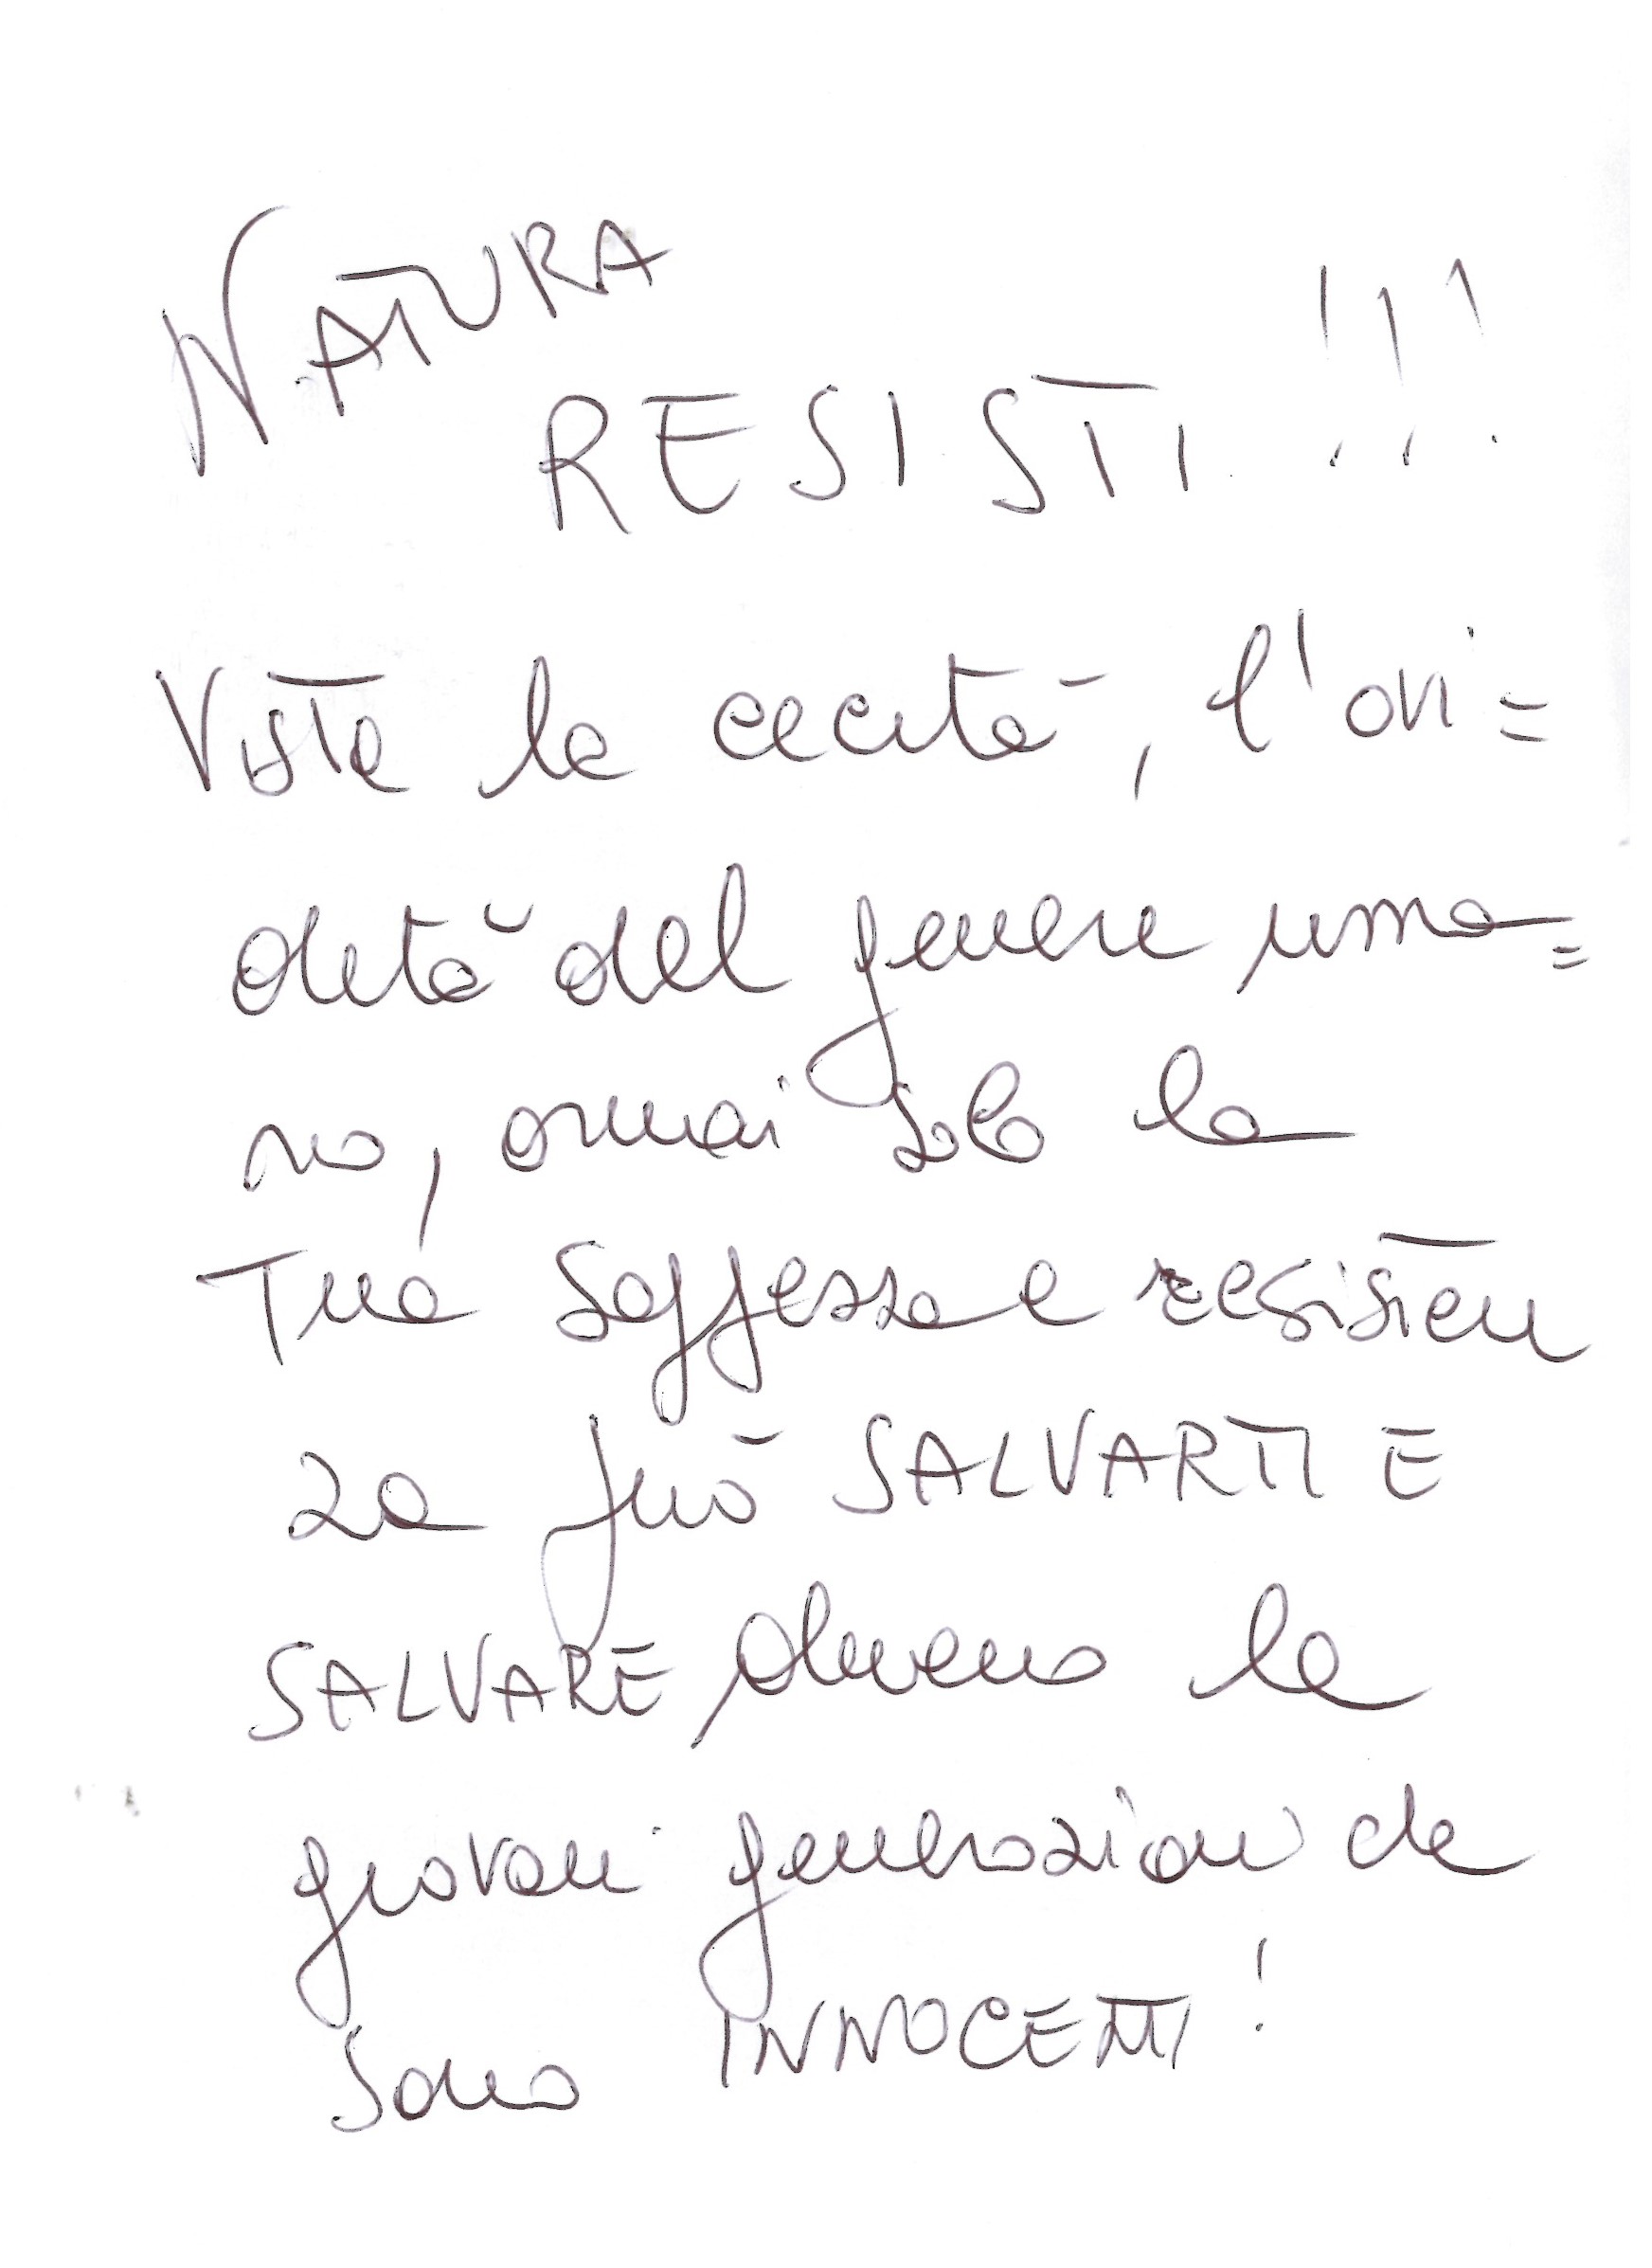 NATURA
RESISTI!!!
Vista la cecità, l'avi=
dità del genere uma=
no, ormai solo la
Tua saggezza e resisten
za può SALVARTI E
SALVARE, almeno le
giovani generazioni che
sono INNOCENTI!